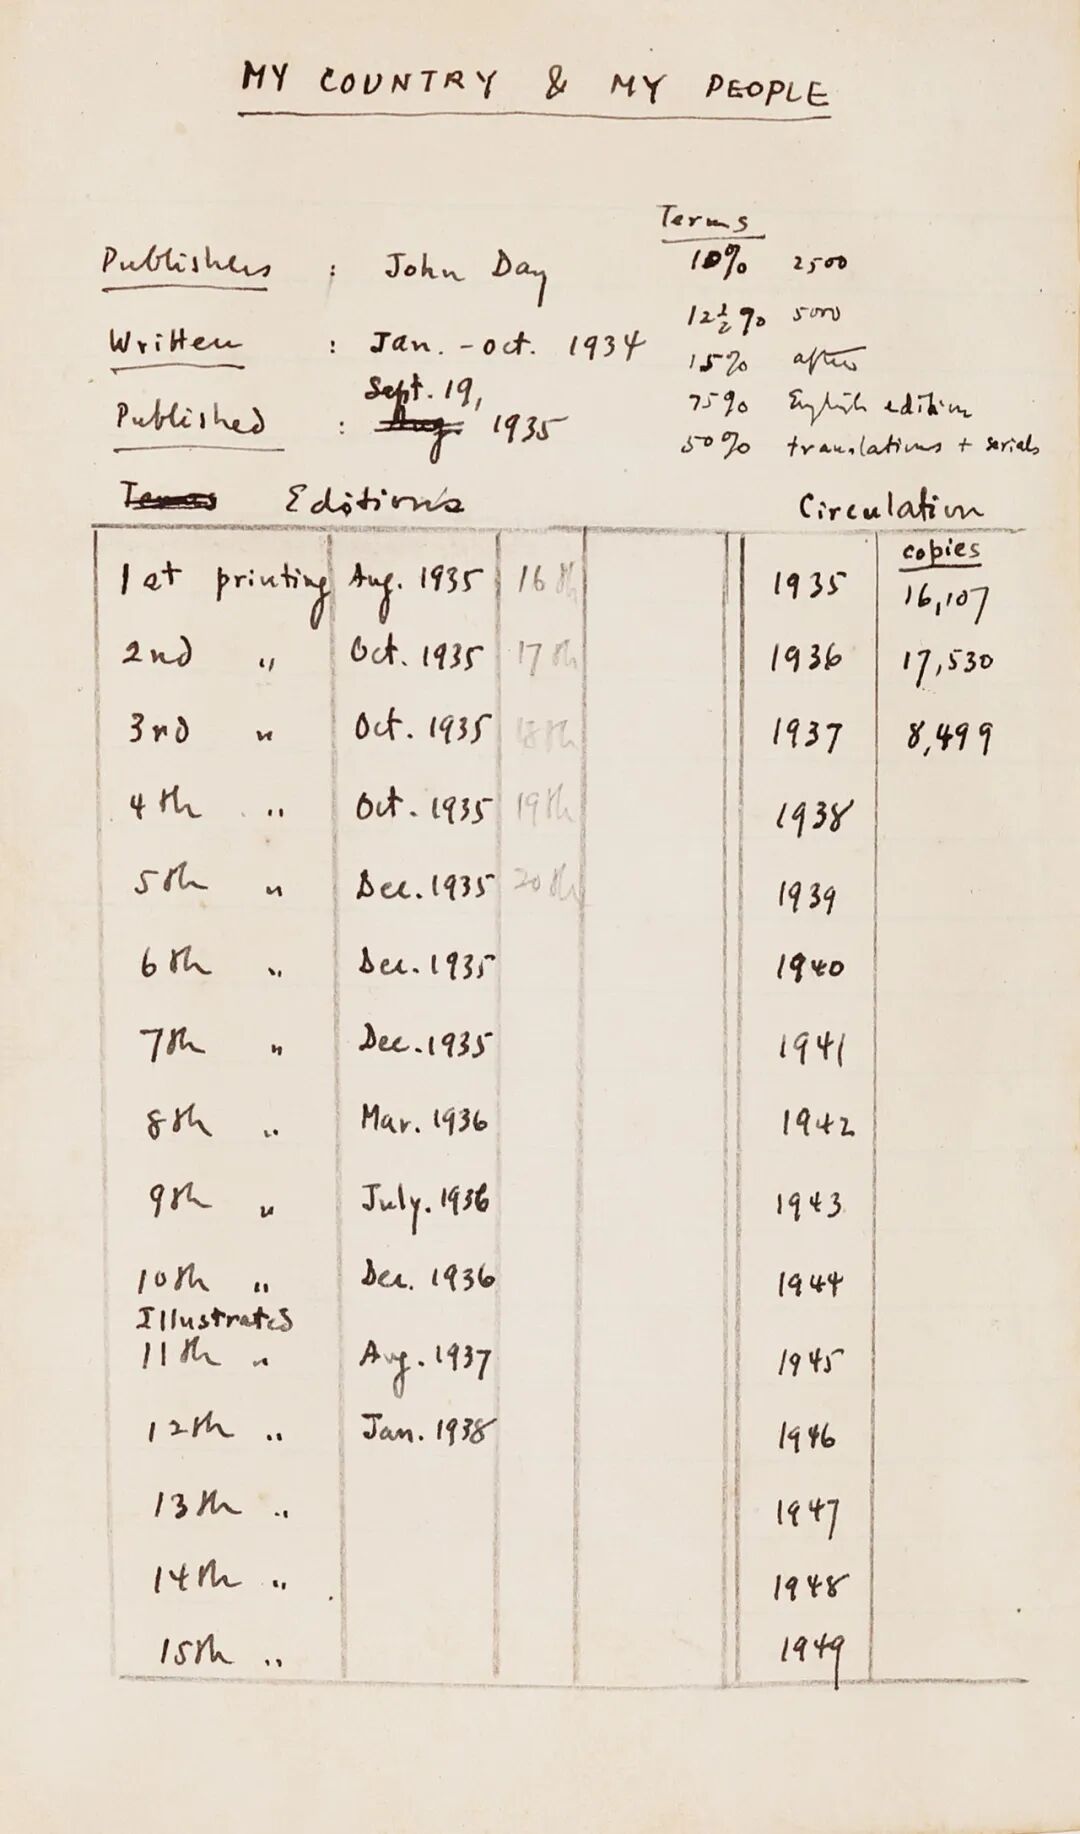 MY COUNTRY & MY PEOPLE
Terms
Publishers : John Day
10% 2500
12½% 5000
Written : Jan. - Oct. 1934
15% after
Sept. 19,
75% English edition
Published : Aug. 1935
50% translations + serials
Terms Editions
Circulation
copies
1st printing Aug. 1935 16th 1935 16,107
2nd " Oct. 1935 17th 1936 17,530
3rd " Oct. 1935 18th 1937 8,499
4th " Oct. 1935 19th 1938
5th " Dec. 1935 20th 1939
6th " Dec. 1935 1940
7th " Dec. 1935 1941
8th " Mar. 1936 1942
9th " July. 1936 1943
10th " Dec. 1936 1944
Illustrated
11th " Aug. 1937 1945
12th " Jan. 1938 1946
13th " 1947
14th " 1948
15th " 1949